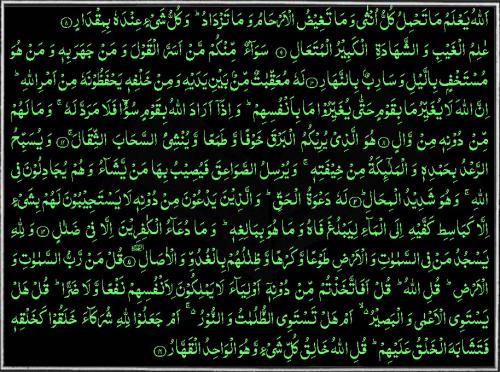 اَللّٰهُ يَعْلَمُ مَا تَحْمِلُ كُلُّ اُنْثٰى وَ مَا تَغِيْضُ الْاَرْحَامُ وَ مَا تَزْدَادُ ؕ وَ كُلُّ شَیْءٍ عِنْدَهٗ بِمِقْدَارٍ ﴿۸﴾
عٰلِمُ الْغَيْبِ وَ الشَّهَادَةِ الْكَبِيْرُ الْمُتَعَالِ ﴿۹﴾ سَوَآءٌ مِّنْكُمْ مَّنْ اَسَرَّ الْقَوْلَ وَ مَنْ جَهَرَ بِهٖ وَ مَنْ هُوَ
مُسْتَخْفٍۭ بِالَّيْلِ وَ سَارِبٌۢ بِالنَّهَارِ ﴿۱۰﴾ لَهٗ مُعَقِّبٰتٌ مِّنْۢ بَيْنِ يَدَيْهِ وَ مِنْ خَلْفِهٖ يَحْفَظُوْنَهٗ مِنْ اَمْرِ اللّٰهِ ؕ
اِنَّ اللّٰهَ لَا يُغَيِّرُ مَا بِقَوْمٍ حَتّٰى يُغَيِّرُوْا مَا بِاَنْفُسِهِمْ ؕ وَ اِذَاۤ اَرَادَ اللّٰهُ بِقَوْمٍ سُوْٓءًا فَلَا مَرَدَّ لَهٗ ۚ وَ مَا لَهُمْ
مِّنْ دُوْنِهٖ مِنْ وَّالٍ ﴿۱۱﴾ هُوَ الَّذِیْ يُرِيْكُمُ الْبَرْقَ خَوْفًا وَّ طَمَعًا وَّ يُنْشِئُ السَّحَابَ الثِّقَالَ ﴿۱۲﴾ وَ يُسَبِّحُ
الرَّعْدُ بِحَمْدِهٖ وَ الْمَلٰٓئِكَةُ مِنْ خِيْفَتِهٖ ۚ وَ يُرْسِلُ الصَّوَاعِقَ فَيُصِيْبُ بِهَا مَنْ يَّشَآءُ وَ هُمْ يُجَادِلُوْنَ فِی
اللّٰهِ ۚ وَ هُوَ شَدِيْدُ الْمِحَالِ ﴿۱۳﴾ لَهٗ دَعْوَةُ الْحَقِّ ؕ وَ الَّذِيْنَ يَدْعُوْنَ مِنْ دُوْنِهٖ لَا يَسْتَجِيْبُوْنَ لَهُمْ بِشَیْءٍ
اِلَّا كَبَاسِطِ كَفَّيْهِ اِلَى الْمَآءِ لِيَبْلُغَ فَاهُ وَ مَا هُوَ بِبَالِغِهٖ ؕ وَ مَا دُعَآءُ الْكٰفِرِيْنَ اِلَّا فِیْ ضَلٰلٍ ﴿۱۴﴾ وَ لِلّٰهِ
يَسْجُدُ مَنْ فِی السَّمٰوٰتِ وَ الْاَرْضِ طَوْعًا وَّ كَرْهًا وَّ ظِلٰلُهُمْ بِالْغُدُوِّ وَ الْاٰصَالِ ﴿۱۵﴾ قُلْ مَنْ رَّبُّ السَّمٰوٰتِ وَ
الْاَرْضِ ؕ قُلِ اللّٰهُ ؕ قُلْ اَفَاتَّخَذْتُمْ مِّنْ دُوْنِهٖۤ اَوْلِيَآءَ لَا يَمْلِكُوْنَ لِاَنْفُسِهِمْ نَفْعًا وَّ لَا ضَرًّا ؕ قُلْ هَلْ
يَسْتَوِی الْاَعْمٰى وَ الْبَصِيْرُ ۙ اَمْ هَلْ تَسْتَوِی الظُّلُمٰتُ وَ النُّوْرُ ۚ اَمْ جَعَلُوْا لِلّٰهِ شُرَكَآءَ خَلَقُوْا كَخَلْقِهٖ
فَتَشَابَهَ الْخَلْقُ عَلَيْهِمْ ؕ قُلِ اللّٰهُ خَالِقُ كُلِّ شَیْءٍ وَّ هُوَ الْوَاحِدُ الْقَهَّارُ ﴿۱۶﴾